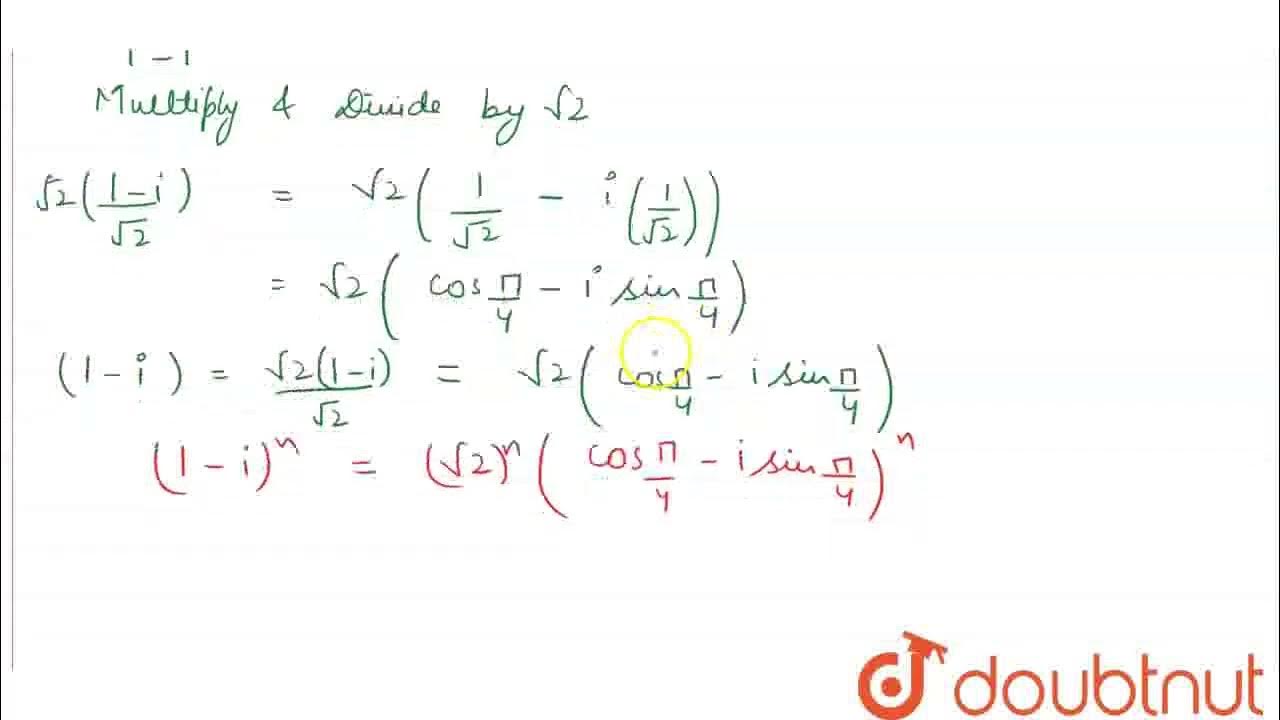 1 - i
Multiply & Divide by √2
√2((1-i)/√2) = √2(1/√2 - i(1/√2))
= √2(cos π/4 - i sin π/4)
(1-i) = √2(1-i)/√2 = √2(cos π/4 - i sin π/4)
(1-i)ⁿ = (√2)ⁿ(cos π/4 - i sin π/4)ⁿ
doubtnut